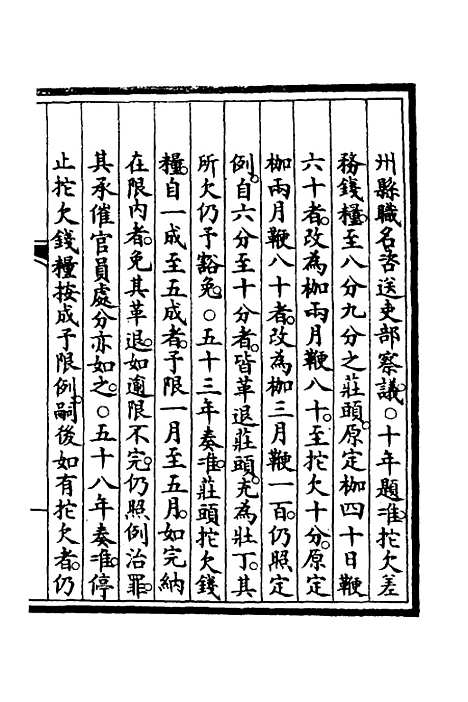 州縣職名咨送吏部察議○十年題準拕欠差
務錢糧至八分九分之莊頭原定枷四十日鞭
六十者改為枷兩月鞭八十至拕欠十分原定
枷兩月鞭八十者改為枷三月鞭一百仍照定
例自六分至十分者皆革退莊頭充為壯丁其
所欠仍予豁免○五十三年奏準莊頭拕欠錢
糧自一成至五成者予限一月至五月如完納
在限內者免其革退如逾限不完仍照例治罪
其承催官員處分亦如之○五十八年奏準停
止拕欠錢糧按成予限例嗣後如有拕欠者仍